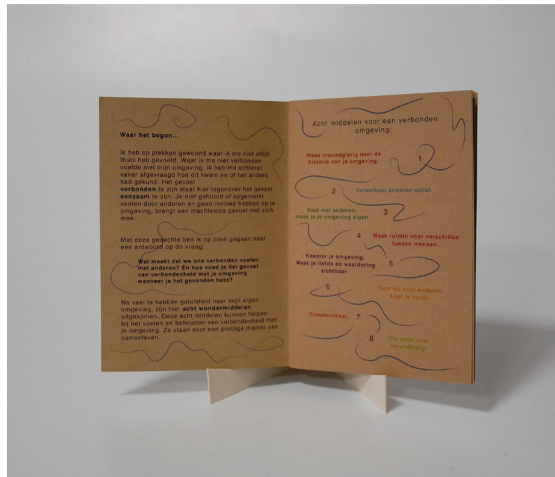 Waar het begon...
Ik heb op plekken gewoond waar ik me niet altijd
thuis heb gevoeld. Waar ik me niet verbonden
voelde met mijn omgeving. Ik heb me achteraf
vaker afgevraagd hoe dit kwam en of het anders
had gekund. Het gevoel
verbonden te zijn staat hier tegenover het gevoel
eenzaam te zijn. Je niet gehoord of opgemerkt
voelen door anderen en geen invloed hebben op je
omgeving, brengt een machteloos gevoel met zich
mee.
Met deze gedachte ben ik op zoek gegaan naar
een antwoord op de vraag:
Wat maakt dat we ons verbonden voelen
met anderen? En hoe voed je dat gevoel
van verbondenheid met je omgeving
wanneer je het gevonden hebt?
Na veel te hebben geluisterd naar mijn eigen
omgeving, zijn hier acht wondermiddelen
uitgekomen. Deze acht middelen kunnen helpen
bij het voelen en behouden van verbondenheid met
je omgeving. Ze staan voor een prettige manier van
samenleven.
Acht middelen voor een verbonden
omgeving:
Wees nieuwsgierig naar de
historie van je omgeving.
1
2
Verwelkom anderen actief.
Deel met anderen,
maak je je omgeving eigen.
3
4
Maak ruimte voor verschillen
tussen mensen.
Koester je omgeving.
Maak je liefde en waardering
zichtbaar.
5
6
Kom op voor anderen.
Laat je horen.
Communiceer.
7
8
Sta open voor
verandering.